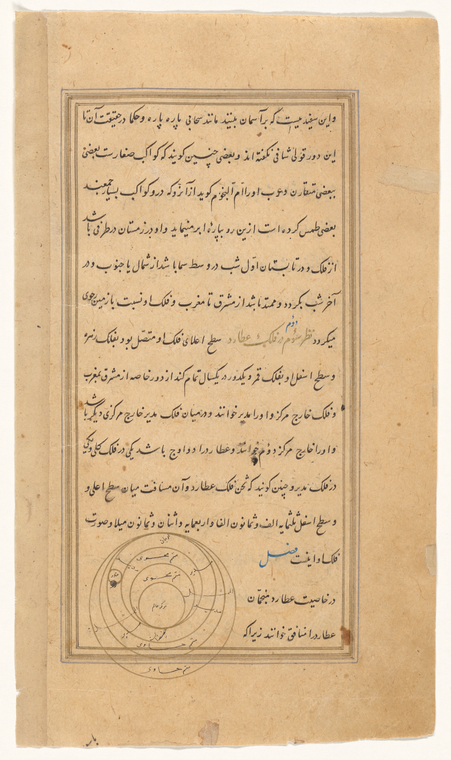 و این سفیدیست که بر آسمان بینند مانند سحابی پاره پاره و حکما در حقیقت آن تا
این دور قولی شافی نگفته اند و بعضی چنین کویند که کواکب صغارست بعضی
ببعضی متقارن و عرب او را ام النجوم کوید از آنرو که درو کواکب بسیار جمعند
بعضی طمس کرده است ازین رو بپاره ابر میماید و او در زمستان در طرفی باشد
از فلک و در تابستان اول شب در وسط سما باشد از شمال یا جنوب و در
آخر شب بکردد و ممتد باشد از مشرق تا مغرب و فلک او نسبت با زمین رحوی
میکردد نظر سوم در فلک عطارد و سطح اعلای فلک او متصل بود بفلک زهره
دوم
و سطح اسفل او بفلک قمر و یکدور در یکسال تمام کند از دور خاصه از مشرق بمغرب
و فلک خارج مرکز و او را مدیر خوانند و در میان فلک مدیر خارج مرکزی دیکر باشد
و او را خارج مرکز دوم خوانند و عطارد را دو اوج باشد یکی در فلک کلی و یکی
در فلک مدیر و چنین کویند که ثخن فلک عطارد و آن مسافت میان سطح اعلی و
و سطح اسفل ثلثمایه الف و ثمانون الفا و اربعمایه و اثنان و ثمانون میلا و صورت
فلک او اینست فصل
در خاصیت عطارد منجمان
عطارد را منافق خوانند زیرا که
مرکز عالم